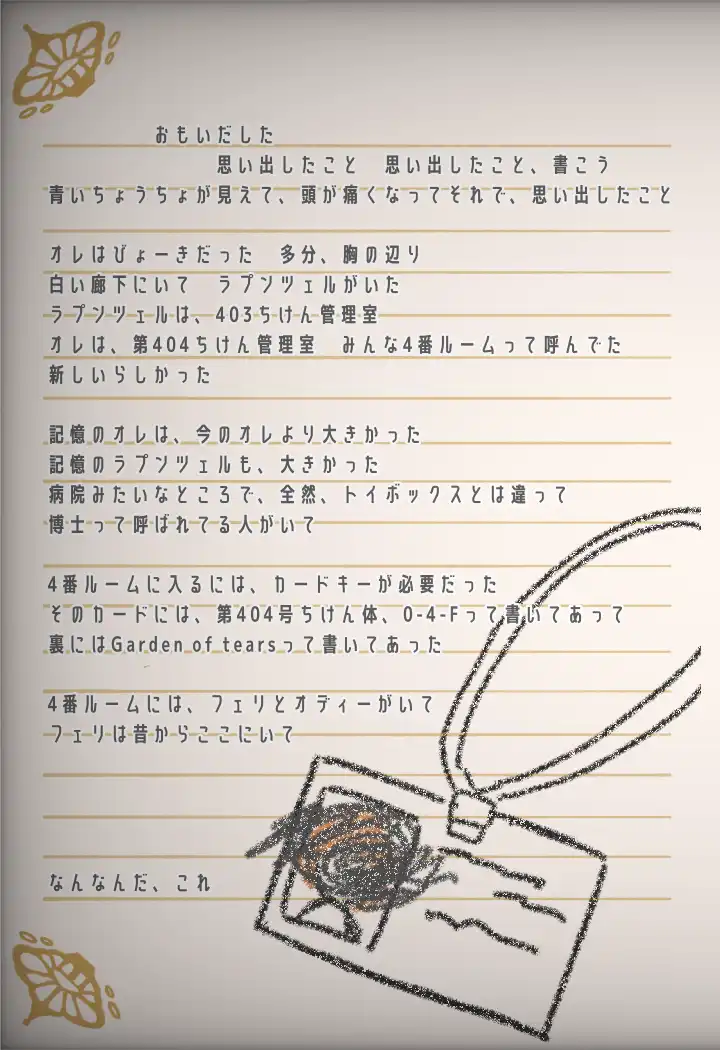 おもいだした
思い出したこと　思い出したこと、書こう
青いちょうちょが見えて、頭が痛くなってそれで、思い出したこと
オレはびょーきだった　多分、胸の辺り
白い廊下にいて　ラプンツェルがいた
ラプンツェルは、403ちけん管理室
オレは、第404ちけん管理室　みんな4番ルームって呼んでた
新しいらしかった
記憶のオレは、今のオレより大きかった
記憶のラプンツェルも、大きかった
病院みたいなところで、全然、トイボックスとは違って
博士って呼ばれてる人がいて
4番ルームに入るには、カードキーが必要だった
そのカードには、第404号ちけん体、0-4-Fって書いてあって
裏にはGarden of tearsって書いてあった
4番ルームには、フェリとオディーがいて
フェリは昔からここにいて
なんなんだ、これ